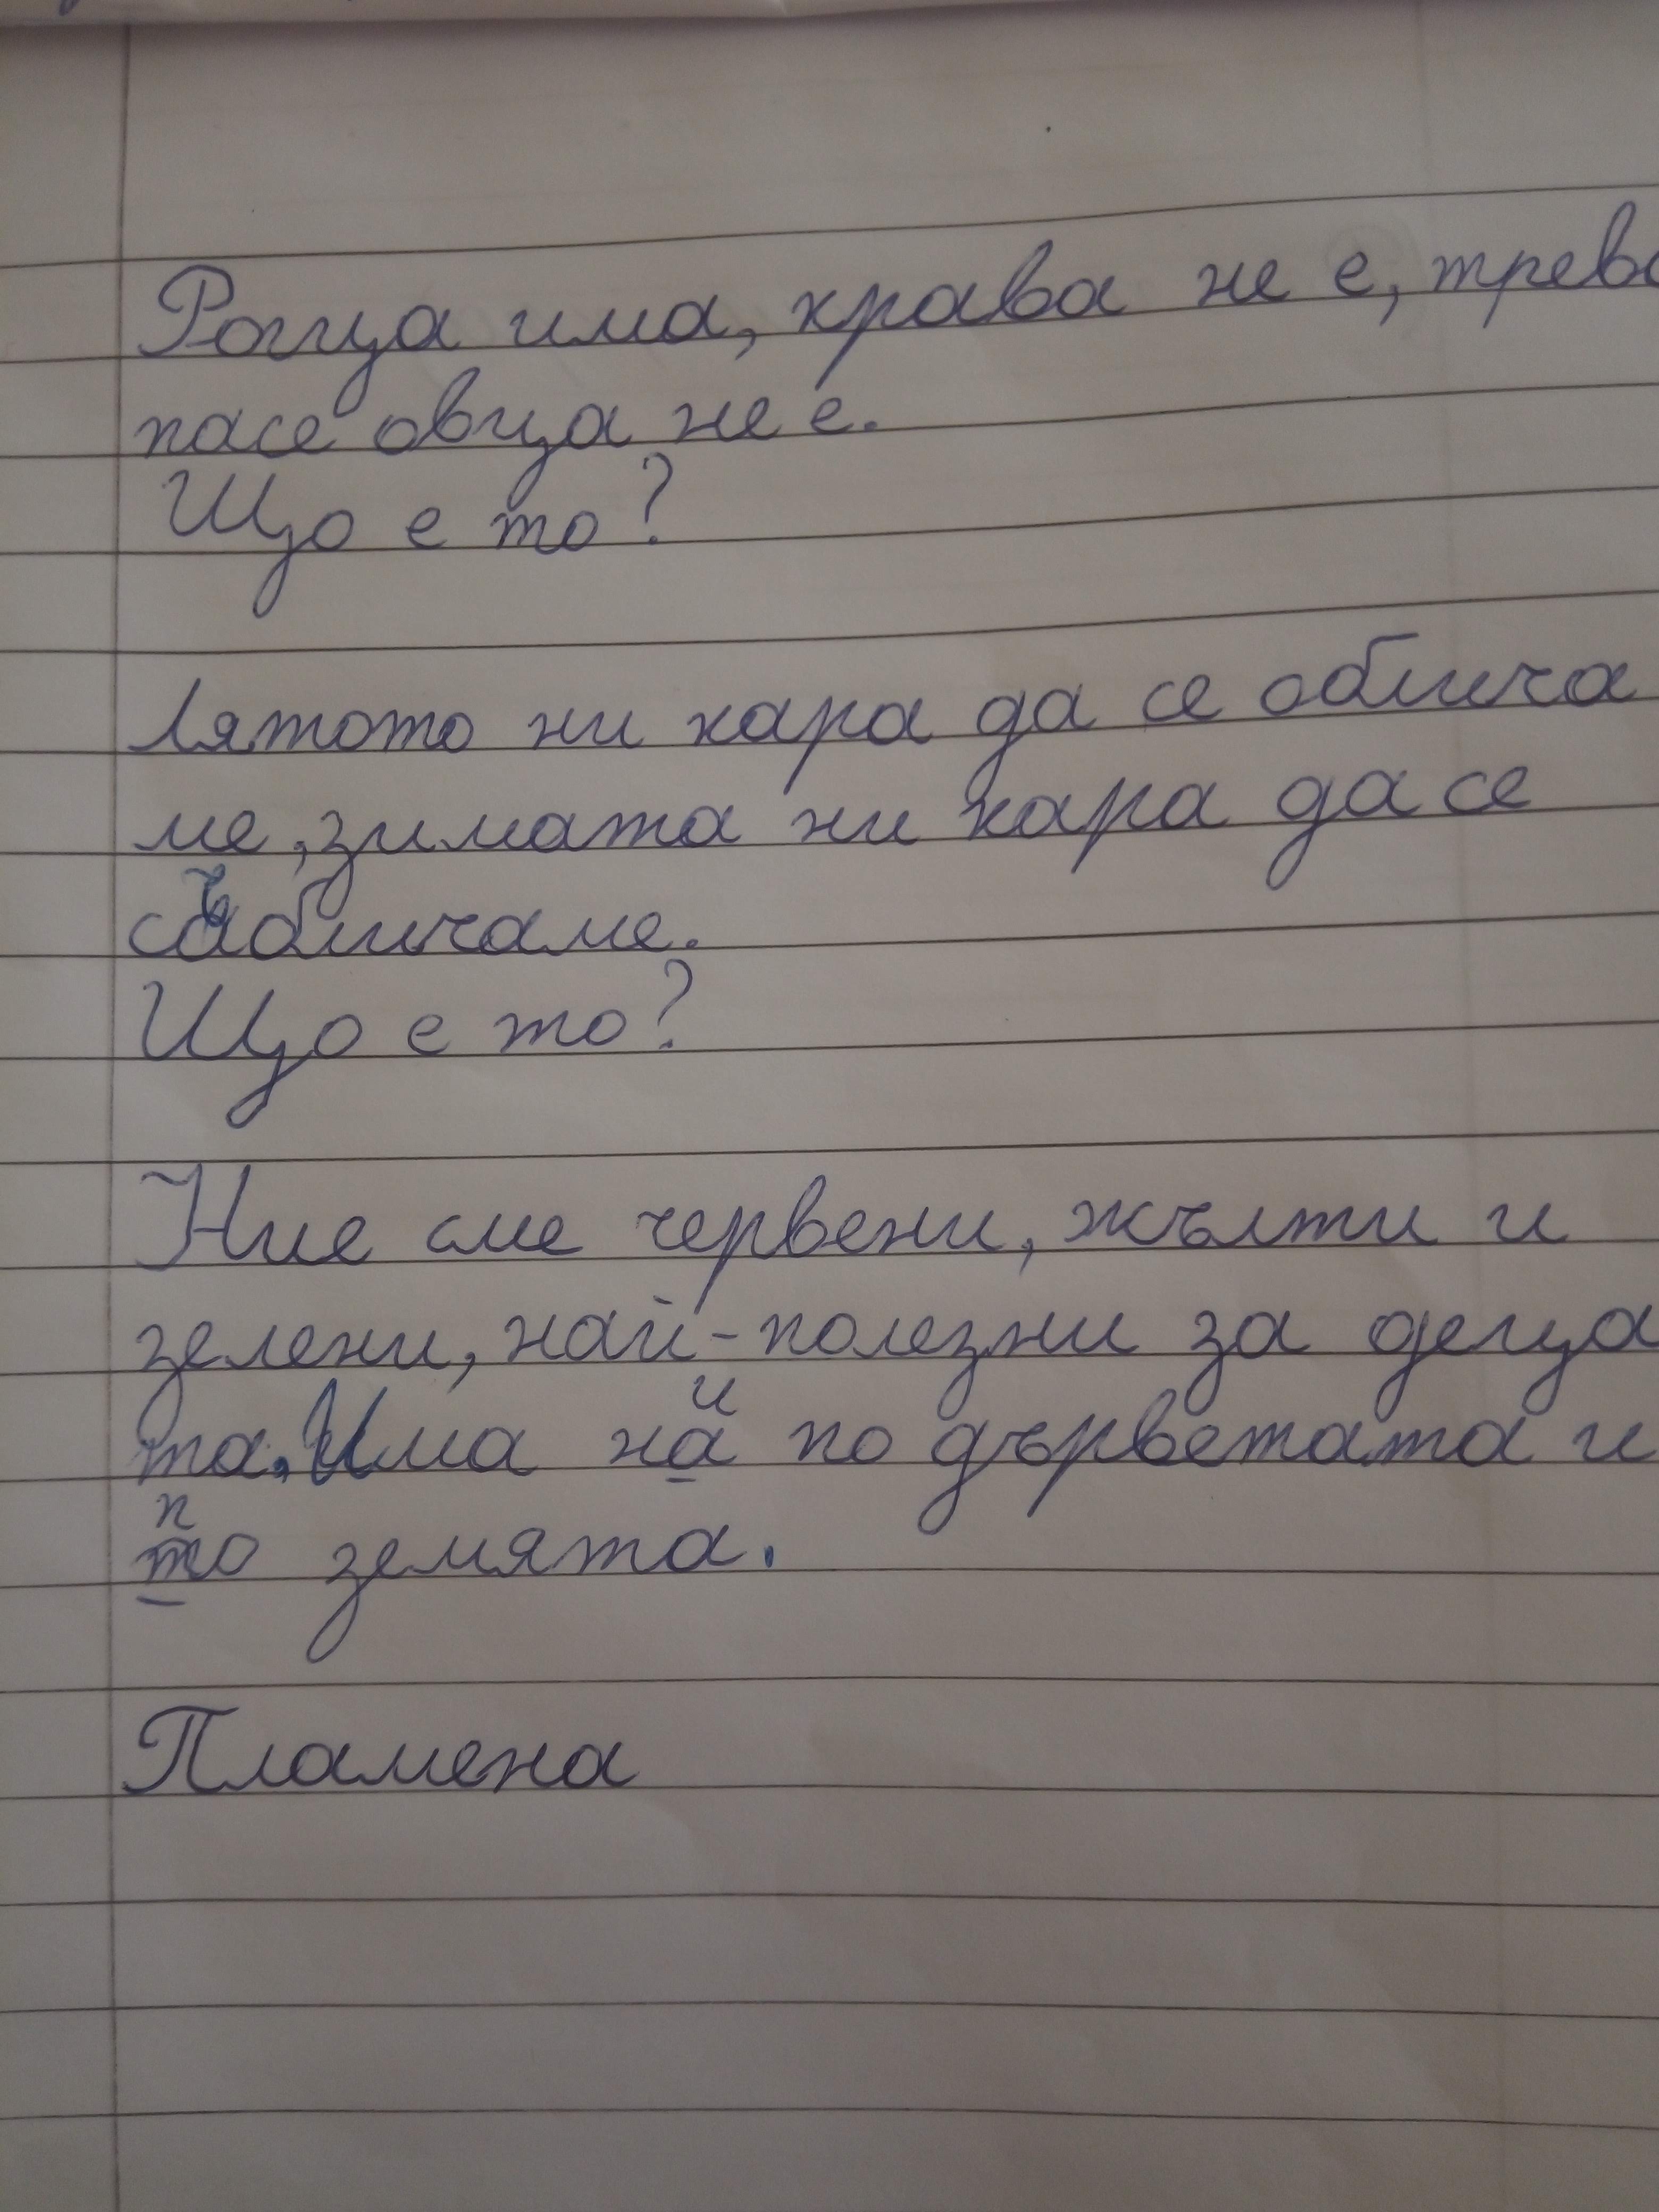 Рогца има, крава не е, трева
пасе овца не е.
Що е то?
Лятото ни кара да се облича
ме, зимата ни кара да се
събличаме.
Що е то?
Ние сме червени, жълти и
зелени, най-полезни за деца
та. Има ни по дърветата и
по земята.
Пламена